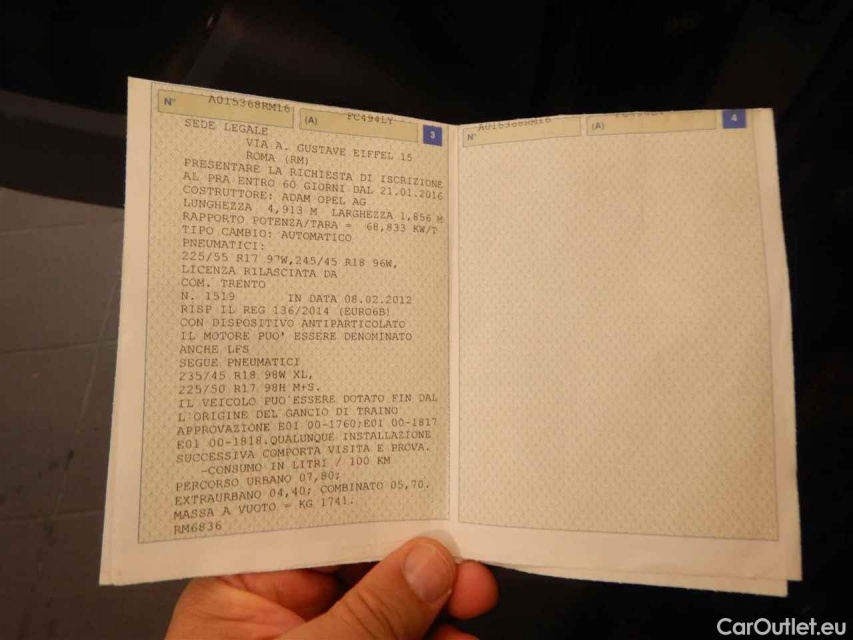 N° A015368RM16 (A) FC494LY 3
SEDE LEGALE
VIA A. GUSTAVE EIFFEL 15
ROMA (RM)
PRESENTARE LA RICHIESTA DI ISCRIZIONE
AL PRA ENTRO 60 GIORNI DAL 21.01.2016
COSTRUTTORE: ADAM OPEL AG
LUNGHEZZA 4,913 M LARGHEZZA 1,856 M
RAPPORTO POTENZA/TARA = 68,833 KW/T
TIPO CAMBIO: AUTOMATICO
PNEUMATICI:
225/55 R17 97W,245/45 R18 96W,
LICENZA RILASCIATA DA
COM. TRENTO
N. 1519 IN DATA 08.02.2012
RISP IL REG 136/2014 (EURO6B)
CON DISPOSITIVO ANTIPARTICOLATO
IL MOTORE PUO' ESSERE DENOMINATO
ANCHE LFS
SEGUE PNEUMATICI
235/45 R18 98W XL,
225/50 R17 98H M+S.
IL VEICOLO PUO'ESSERE DOTATO FIN DAL
L'ORIGINE DEL GANCIO DI TRAINO
APPROVAZIONE E01 00-1760;E01 00-1817
E01 00-1818.QUALUNQUE INSTALLAZIONE
SUCCESSIVA COMPORTA VISITA E PROVA.
-CONSUMO IN LITRI / 100 KM
PERCORSO URBANO 07,80;
EXTRAURBANO 04,40; COMBINATO 05,70.
MASSA A VUOTO = KG 1741.
RM6836
N° A015368RM16 (A) FC494LY 4
CarOutlet.eu